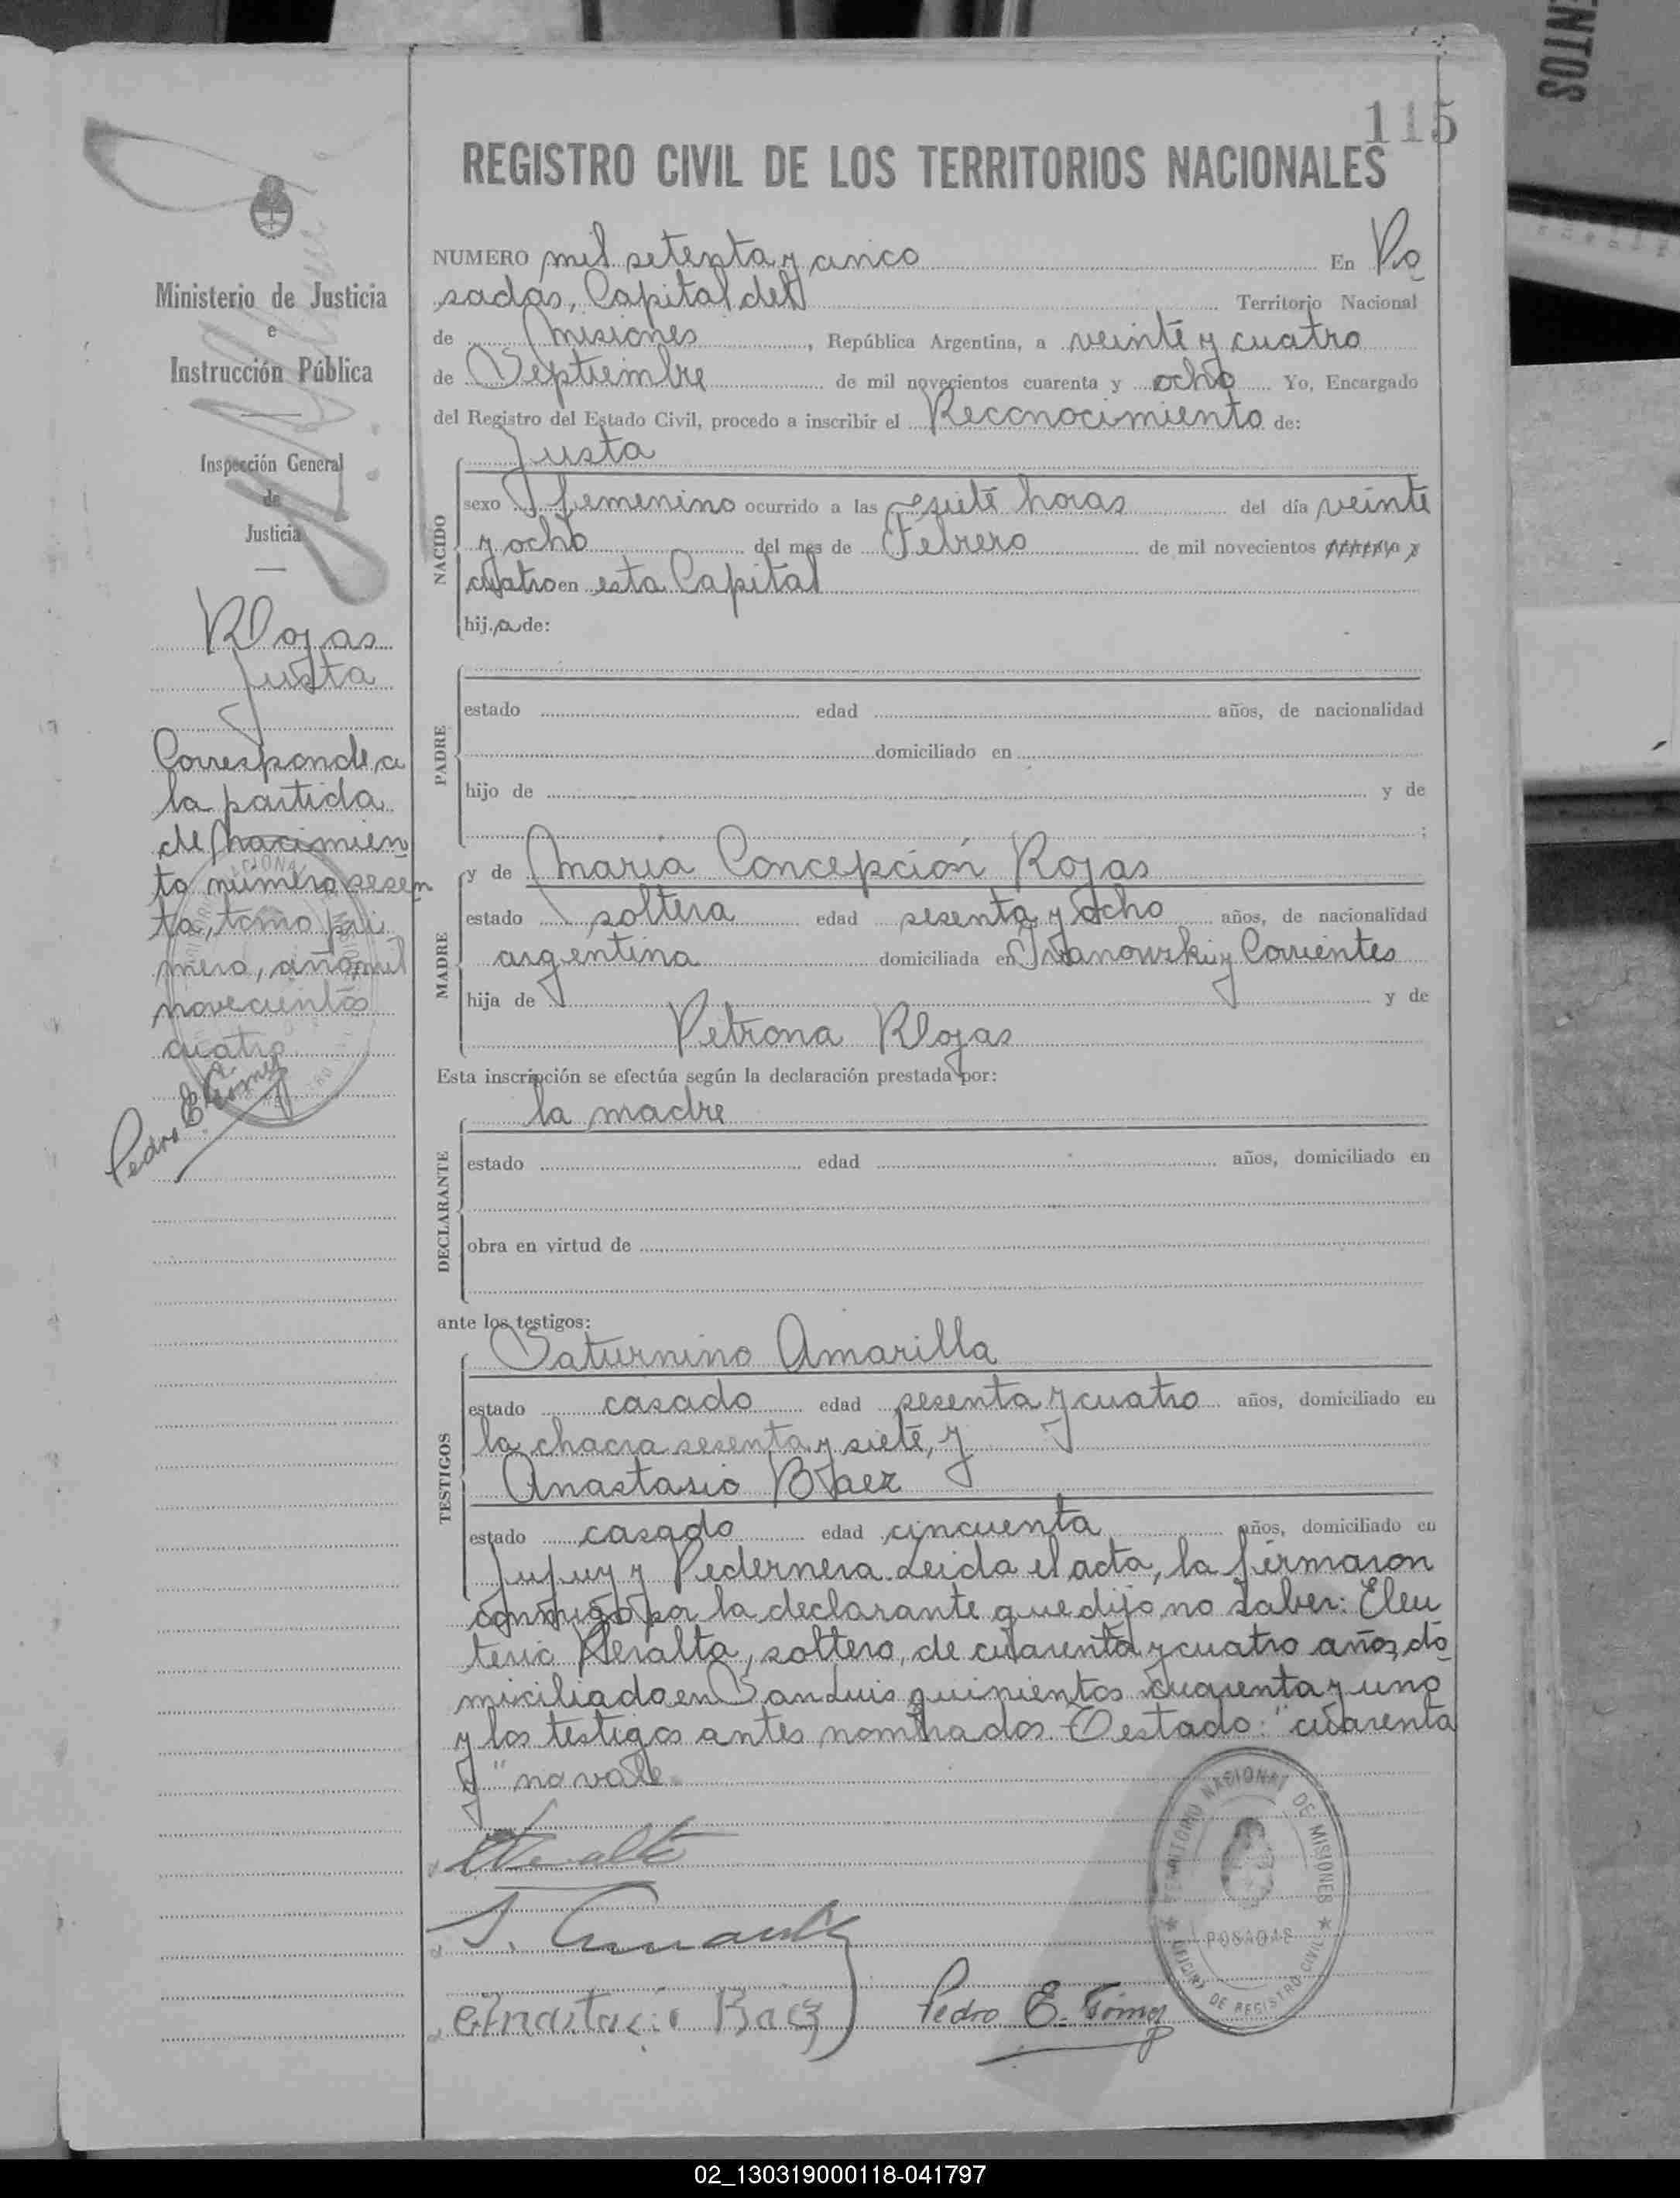 ENTOS
115
REGISTRO CIVIL DE LOS TERRITORIOS NACIONALES
Ministerio de Justicia
e
Instrucción Pública
Inspección General
de
Justicia
Rojas
Justa
Corresponde a
la partida
de nacimien
to número sesen
ta, tomo pri
mero, año mil
novecientos
cuatro
Pedro E. Gómez
NUMERO mil setenta y cinco En Po
sadas, Capital del Territorio Nacional
de Misiones, República Argentina, a veinte y cuatro
de Septiembre de mil novecientos cuarenta y ocho Yo, Encargado
del Registro del Estado Civil, procedo a inscribir el Reconocimiento de:
Justa
NACIDO
sexo femenino ocurrido a las siete horas del día veinte
y ocho del mes de Febrero de mil novecientos y
cuatro en esta Capital
hij.a de:
PADRE
estado edad años, de nacionalidad
domiciliado en
hijo de y de
;
MADRE
y de María Concepción Rojas
estado soltera edad sesenta y ocho años, de nacionalidad
argentina domiciliada en Ivanowski y Corrientes
hija de y de
Petrona Rojas
Esta inscripción se efectúa según la declaración prestada por:
la madre
DECLARANTE
estado edad años, domiciliado en
obra en virtud de
ante los testigos:
TESTIGOS
Saturnino Amarilla
estado casado edad sesenta y cuatro años, domiciliado en
la chacra sesenta y siete, y
Anastasio Baez
estado casado edad cincuenta años, domiciliado en
Jujuy y Pedernera. Leida el acta, la firmaron
conmigo por la declarante que dijo no saber: Eleu
terio Peralta, soltero, de cuarenta y cuatro años, do
miciliado en San Luis quinientos cuarenta y uno
y los testigos antes nombrados. Testado: "cuarenta
y" no vale.
Anastacio Baez
Pedro E. Gómez
TERRITORIO NACIONAL DE MISIONES
POSADAS
OFICINA DE REGISTRO CIVIL
02_130319000118-041797